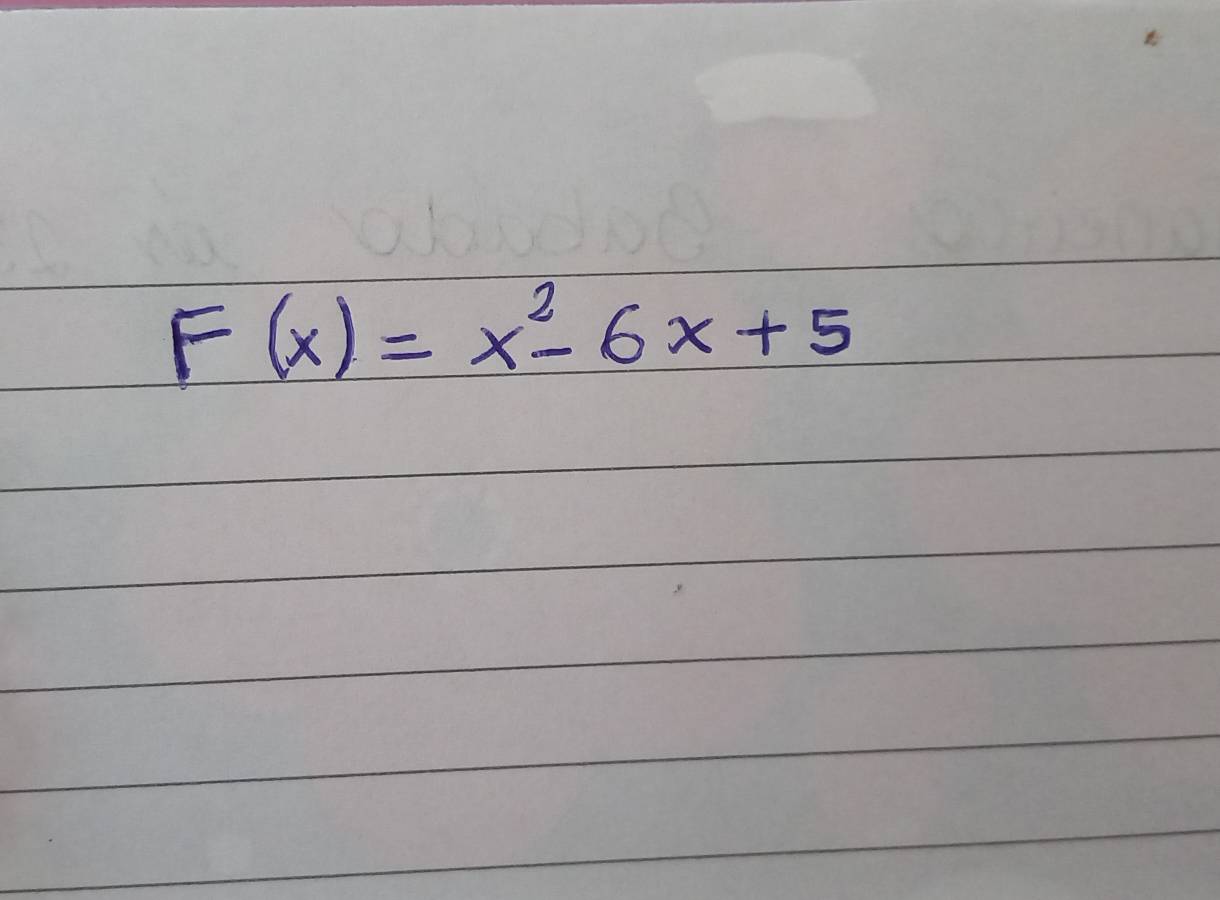 F(x) = x² - 6x + 5